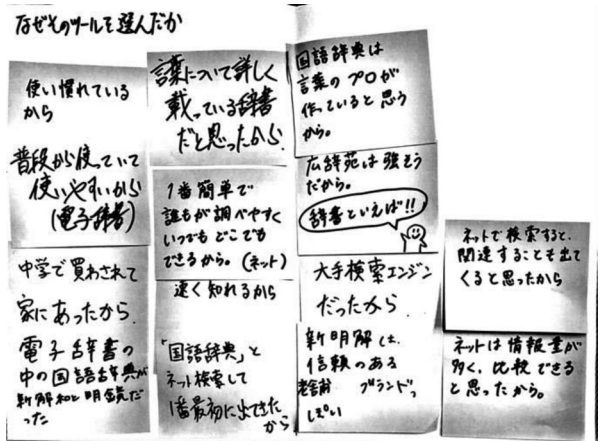 なぜそのツールを選んだか
使い慣れている
から
普段から使っていて
使いやすいから
(電子辞書)
中学で買わされて
家にあったから
電子辞書の
中の国語辞典が
新解和と明鏡だ
った
言葉について詳しく
載っている辞書
だと思ったから
1番簡単で
誰もが調べやすく
いつでもどこでも
できるから。(ネット)
速く知れるから
「国語辞典」と
ネット検索して
1番最初に出てきた
から
国語辞典は
言葉のプロが
作っていると思う
から。
広辞苑は強そう
だから。
辞書といえば!!
大手検索エンジン
だったから
新明解は、
信頼のある
老舗 ブランドっ
ぽい
ネットで検索すると、
関連することも出て
くると思ったから
ネットは情報量が
多く、比較できる
と思ったから。